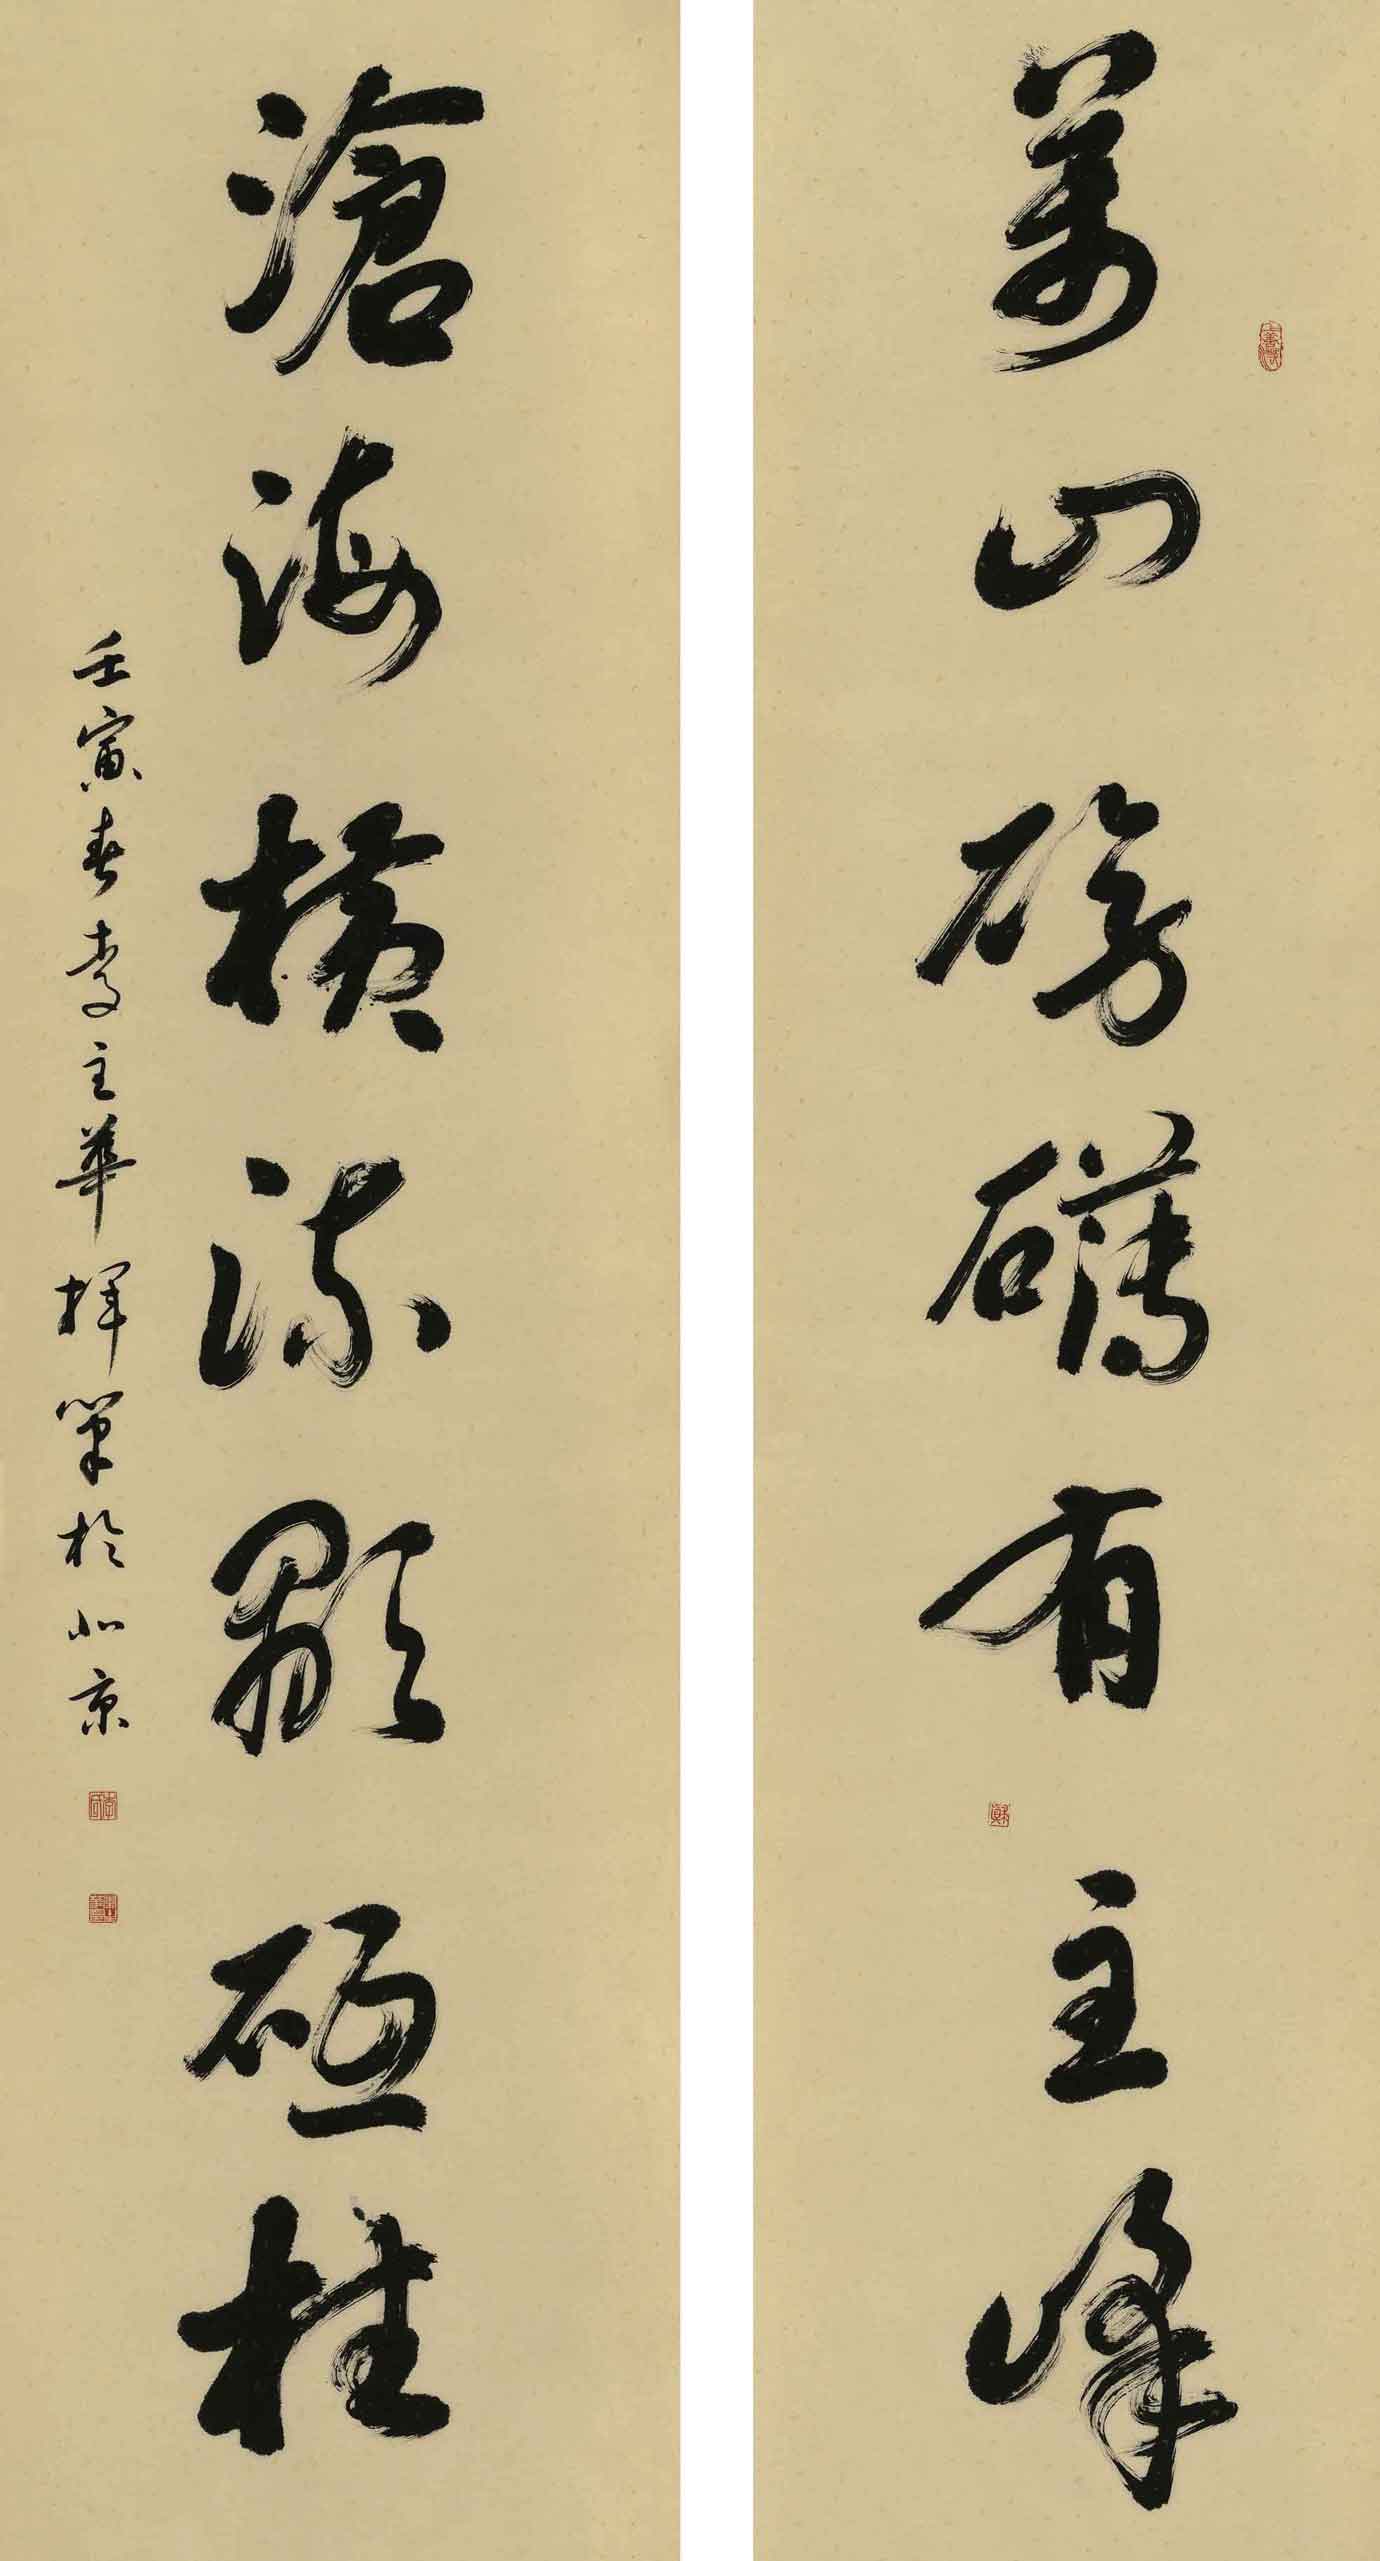 萬山磅礴有主峰
滄海横流顯砥柱
壬寅春李主華揮筆於北京